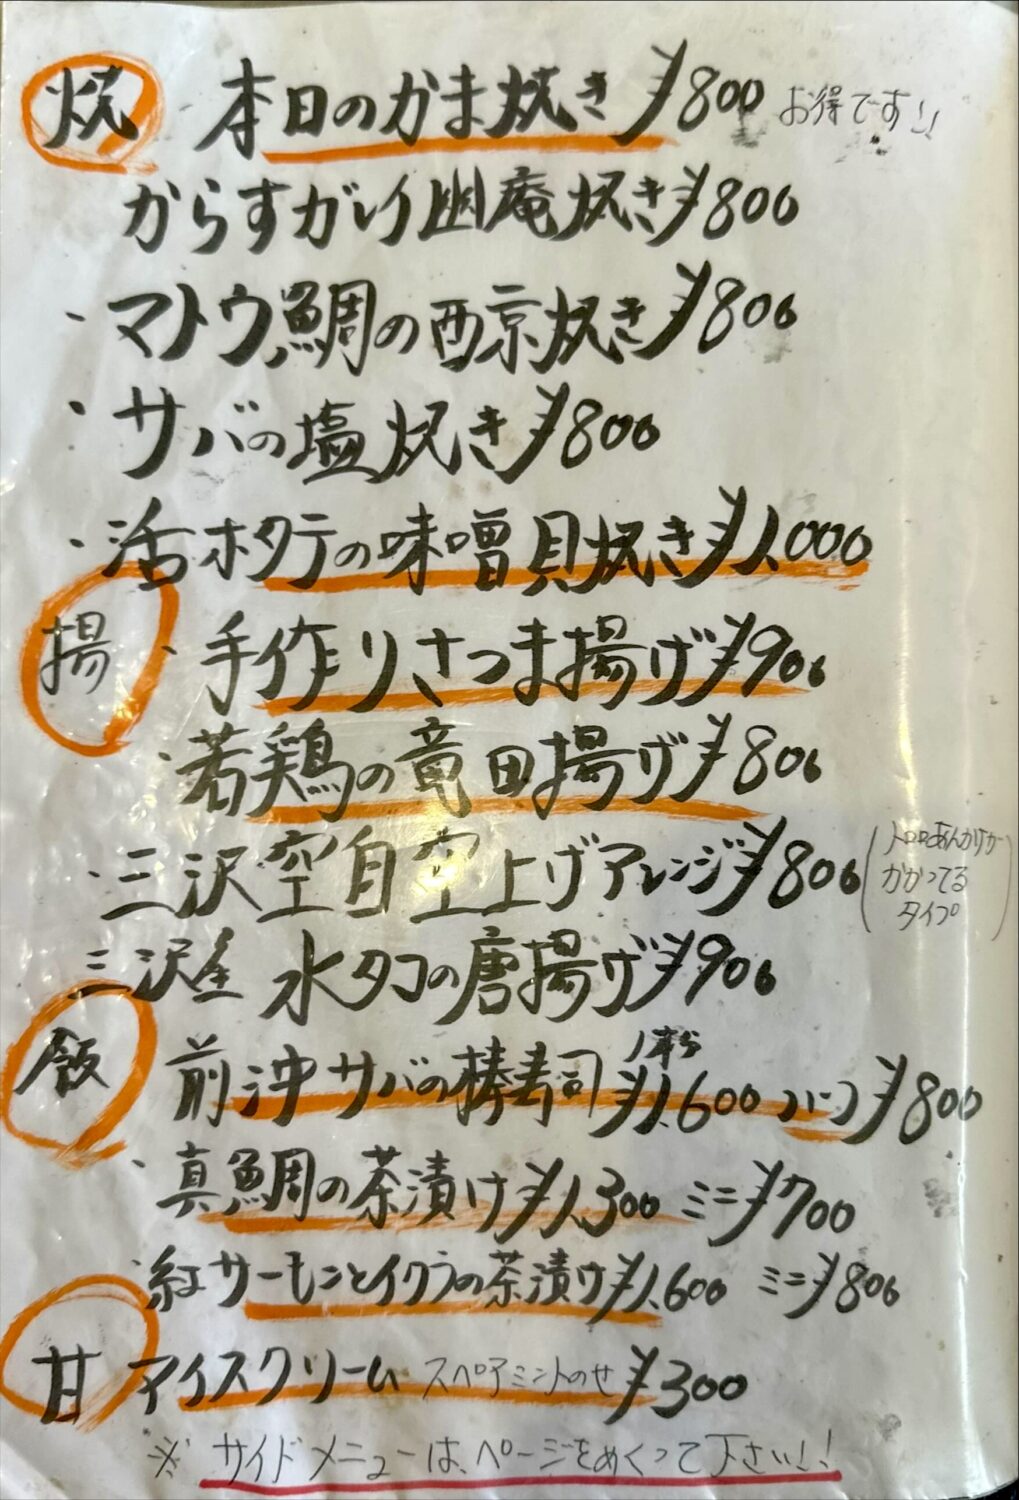 焼 本日のかま焼き ¥800 お得です!!
からすガレイ幽庵焼き ¥800
・マトウ鯛の西京焼き ¥800
・サバの塩焼き ¥800
・活ホタテの味噌貝焼き ¥1,000
揚 ・手作りさつま揚げ ¥900
・若鶏の竜田揚げ ¥800
・三沢空自空上げアレンジ ¥800 (トロロあんかけが
かかってる
タイプ)
三沢産 水タコの唐揚げ ¥900
飯 前沖サバの棒寿司 1本 ¥1,600 ハーフ ¥800
・真鯛の茶漬け ¥1,300 ミニ ¥700
・紅サーモンとイクラの茶漬け ¥1,600 ミニ ¥800
甘 アイスクリーム スペアミントのせ ¥300
※ サイドメニューは、ページをめくって下さい!!